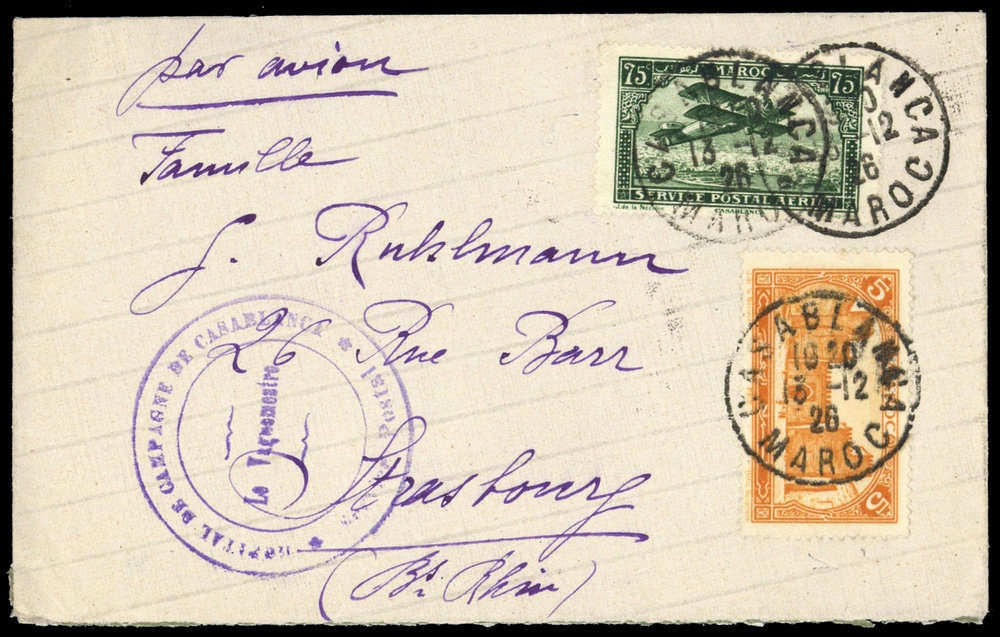 par avion
Famille
J. Ruhlmann
26 Rue Barr
Strasbourg
(Bs. Rhin)
75 MAROC 75
SERVICE POSTAL AERIEN
CASABLANCA
CASABLANCA
13 -12
26
MAROC
BLANCA
-12
26
MAROC
5
5
CASABLANCA
1920
13 -12
26
MAROC
HOPITAL DE CAMPAGNE DE CASABLANCA
Postal
Le Vaguemestre